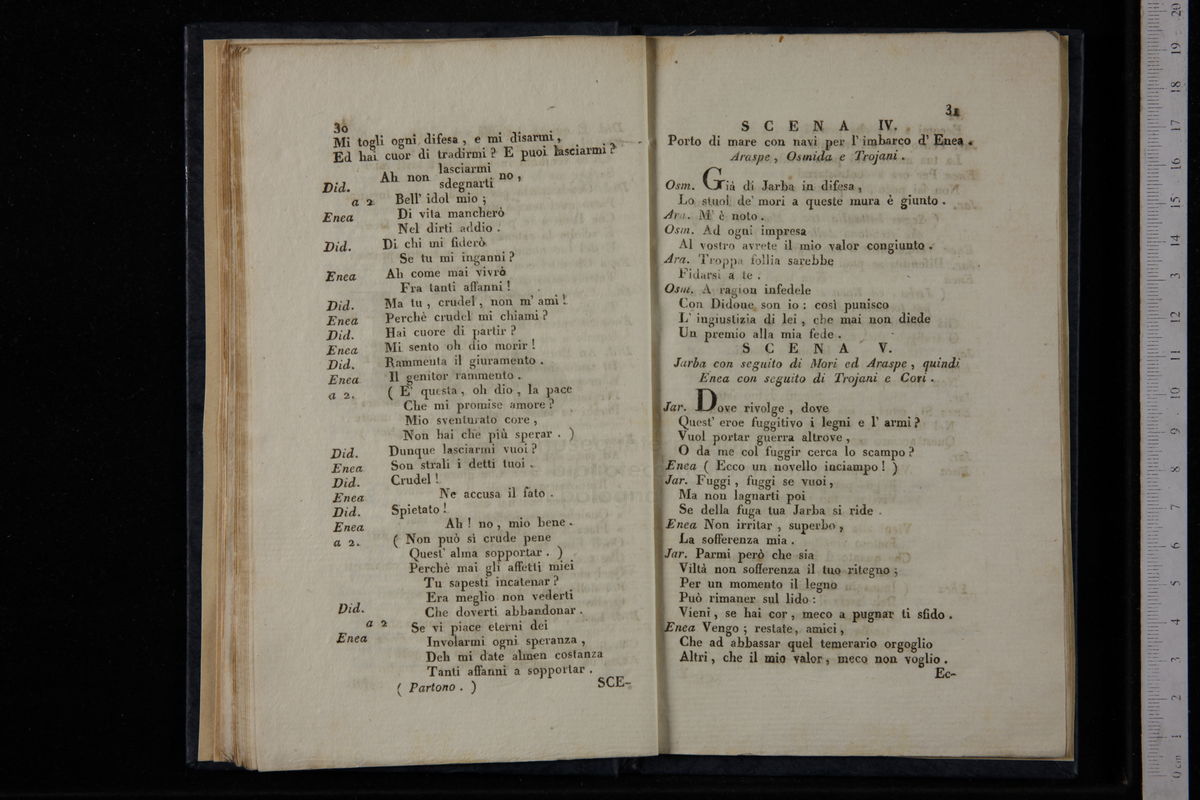 30
Mi togli ogni difesa , e mi disarmi ,
Ed hai cuor di tradirmi ? E puoi lasciarmi ?
Did. a 2 Enea Ah non lasciarmi sdegnarti no ,
Bell' idol mio ;
Di vita mancherò
Nel dirti addio .
Did. Di chi mi fiderò
Se tu mi inganni ?
Enea Ah come mai vivrò
Fra tanti affanni !
Did. Ma tu , crudel , non m' ami !
Enea Perchè crudel mi chiami ?
Did. Hai cuore di partir ?
Enea Mi sento oh dio morir !
Did. Rammenta il giuramento .
Enea Il genitor rammento .
a 2. ( E' questa , oh dio , la pace
Che mi promise amore ?
Mio sventurato core ,
Non hai che più sperar . )
Did. Dunque lasciarmi vuoi ?
Enea Son strali i detti tuoi .
Did. Crudel !
Enea Ne accusa il fato .
Did. Spietato !
Enea Ah ! no , mio bene .
a 2. ( Non può sì crude pene
Quest' alma sopportar . )
Perchè mai gli affetti miei
Tu sapesti incatenar ?
Era meglio non vederti
Che doverti abbandonar .
Did. a 2 Enea Se vi piace eterni dei
Involarmi ogni speranza ,
Deh mi date almen costanza
Tanti affanni a sopportar .
( Partono . ) SCE-
31
SCENA IV.
Porto di mare con navi per l' imbarco d' Enea .
Araspe , Osmida e Trojani .
Osm. Già di Jarba in difesa ,
Lo stuol de' mori a queste mura è giunto .
Ara. M' è noto .
Osm. Ad ogni impresa
Al vostro avrete il mio valor congiunto .
Ara. Troppa follia sarebbe
Fidarsi a te .
Osm. A ragion infedele
Con Didone son io : così punisco
L' ingiustizia di lei , che mai non diede
Un premio alla mia fede .
SCENA V.
Jarba con seguito di Mori ed Araspe , quindi
Enea con seguito di Trojani e Cori .
Jar. Dove rivolge , dove
Quest' eroe fuggitivo i legni e l' armi ?
Vuol portar guerra altrove ,
O da me col fuggir cerca lo scampo ?
Enea ( Ecco un novello inciampo ! )
Jar. Fuggi , fuggi se vuoi ,
Ma non lagnarti poi
Se della fuga tua Jarba si ride .
Enea Non irritar , superbo ,
La sofferenza mia .
Jar. Parmi però che sia
Viltà non sofferenza il tuo ritegno ;
Per un momento il legno
Può rimaner sul lido :
Vieni , se hai cor , meco a pugnar ti sfido .
Enea Vengo ; restate , amici ,
Che ad abbassar quel temerario orgoglio
Altri , che il mio valor , meco non voglio .
Ec-
0 cm 1 2 3 4 5 6 7 8 9 10 11 12 13 14 15 16 17 18 19 20